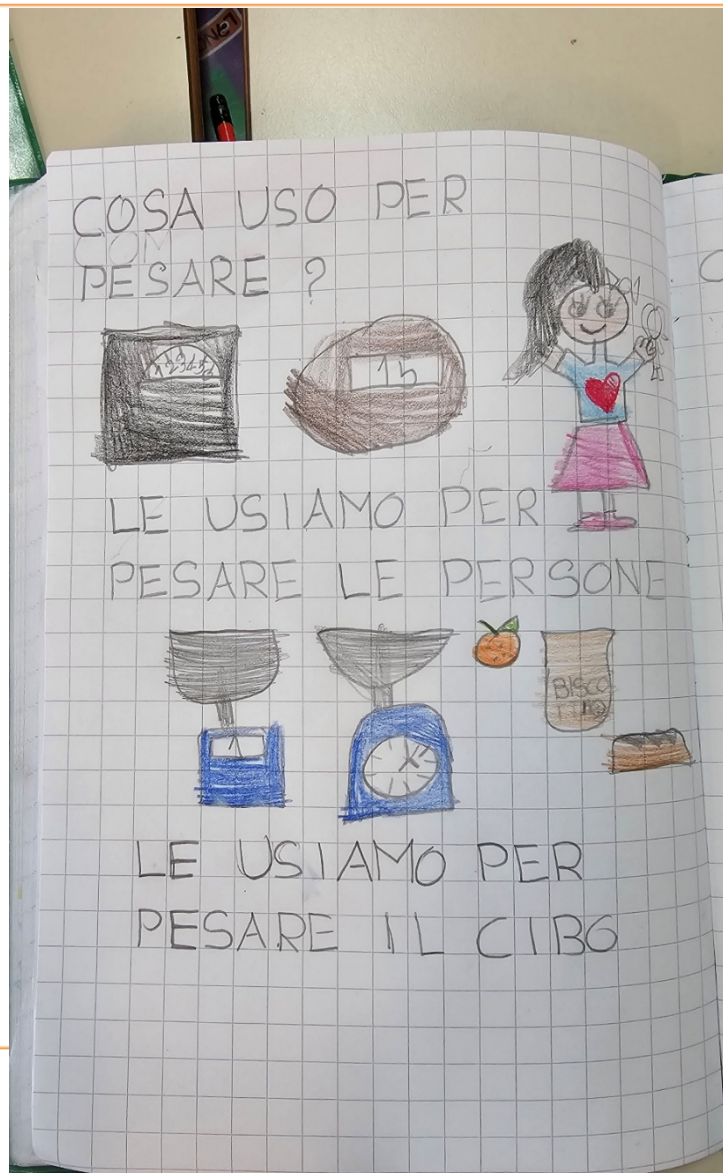 COSA USO PER
COM
PESARE ?
1 2 3 4 5
15
LE USIAMO PER
PESARE LE PERSONE
BISCO
1
LE USIAMO PER
PESARE IL CIBO